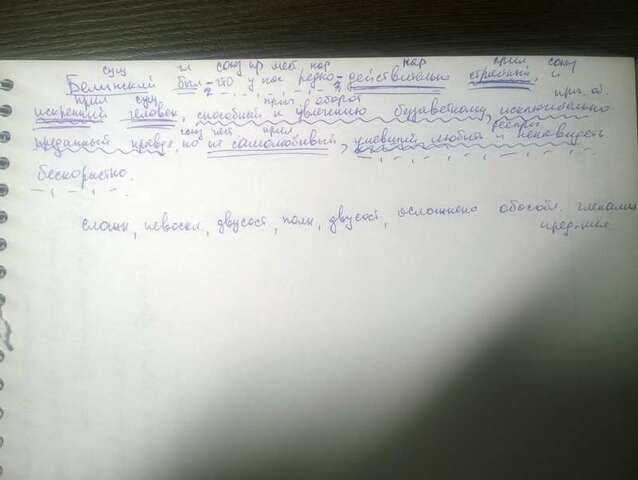 сущ гл союз пр мест нар нар прил союз
Белинский был – что у нас редко – действительно страстный, и
прил сущ прил оборот пр. об.
искренний человек, способный к увлечению беззаветному, исключительно
союз част прил
преданный правде, но не самолюбивый, умевший любить и ненавидеть
бескорыстно.
сложн, невоскл, двусост, полн, двусост, осложнено обособл. членами
предлож